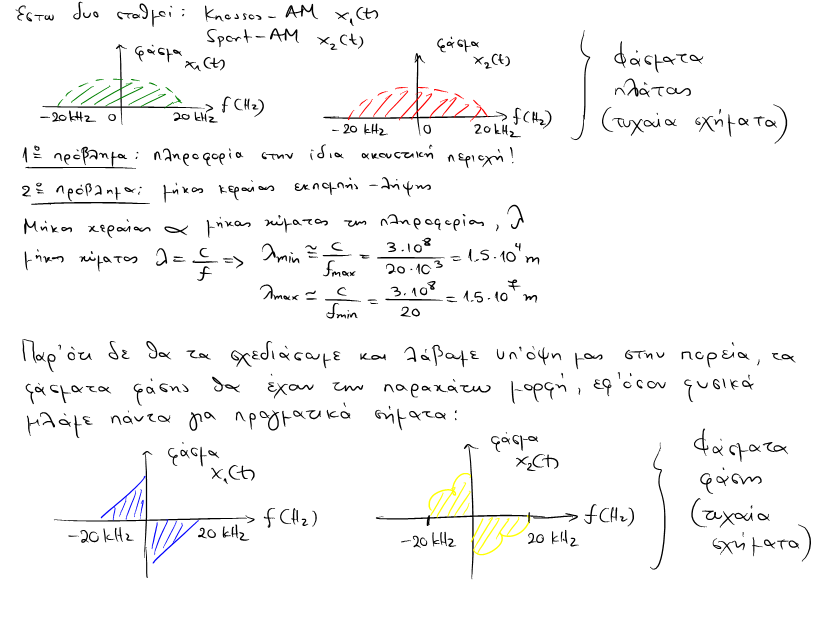 Έστω δυο σταθμοί: Knossos-AM x₁(t)
Sport-AM x₂(t)
φάσμα x₁(t)
f(Hz)
-20kHz 0 20kHz
φάσμα x₂(t)
f(Hz)
-20kHz 0 20kHz
Φάσματα
πλάτους
(τυχαία σχήματα)
1º πρόβλημα: πληροφορία στην ίδια ακουστική περιοχή!
2º πρόβλημα: μήκος κεραίας εκπομπής-λήψης
Μήκος κεραίας ∝ μήκος κύματος της πληροφορίας, λ
μήκος κύματος λ = c/f => λmin ≅ c/fmax = 3·10⁸/20·10³ = 1.5·10⁴ m
λmax ≃ c/fmin = 3·10⁸/20 = 1.5·10⁷ m
Παρ'ότι δε θα τα σχεδιάσουμε και λάβουμε υπ'όψη μας στην πορεία, τα
φάσματα φάσης θα έχουν την παρακάτω μορφή, εφ'όσον φυσικά
μιλάμε πάντα για πραγματικά σήματα:
φάσμα
x₁(t)
f(Hz)
-20kHz 20kHz
φάσμα
x₂(t)
f(Hz)
-20kHz 20kHz
Φάσματα
φάσης
(τυχαία
σχήματα)